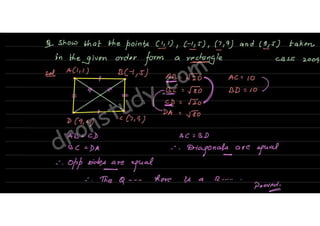 Q Show that the points (1,1), (-1,5), (7,9) and (9,5) taken
in the given order form a rectangle CBSE 2004
Sol A(1,1) B(-1,5) AB = √20 AC = 10
BC = √80 BD = 10
CD = √20
D(9,5) C(7,9) DA = √80
AB = CD AC = BD
BC = DA ∴ Diagonals are equal
∴ Opp sides are equal
∴ The Q --- here is a R----.
Proved.